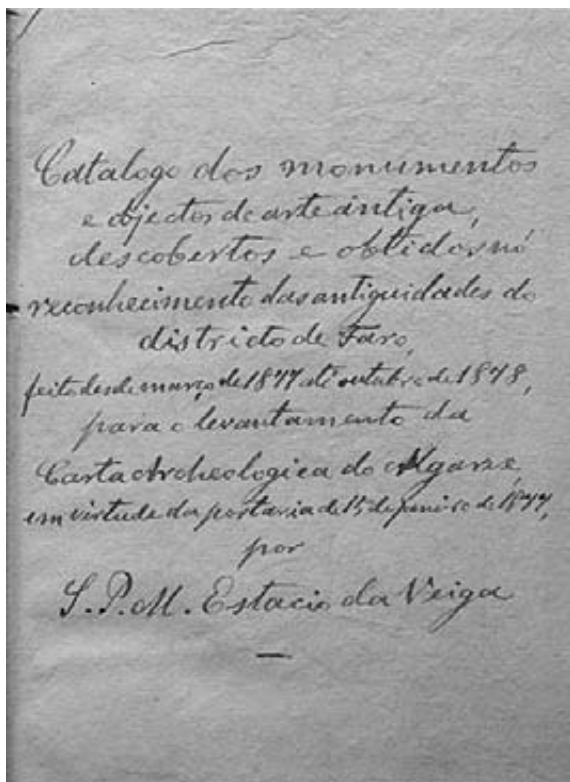 Catalogo dos monumentos
e objectos de arte antiga,
descobertos e obtidos no
reconhecimento das antiguidades do
districto de Faro,
feito desde março de 1877 até outubro de 1878,
para o levantamento da
Carta Archeologica do Algarve,
em virtude da portaria de 15 de janeiro de 1877,
por
S. P. M. Estacio da Veiga